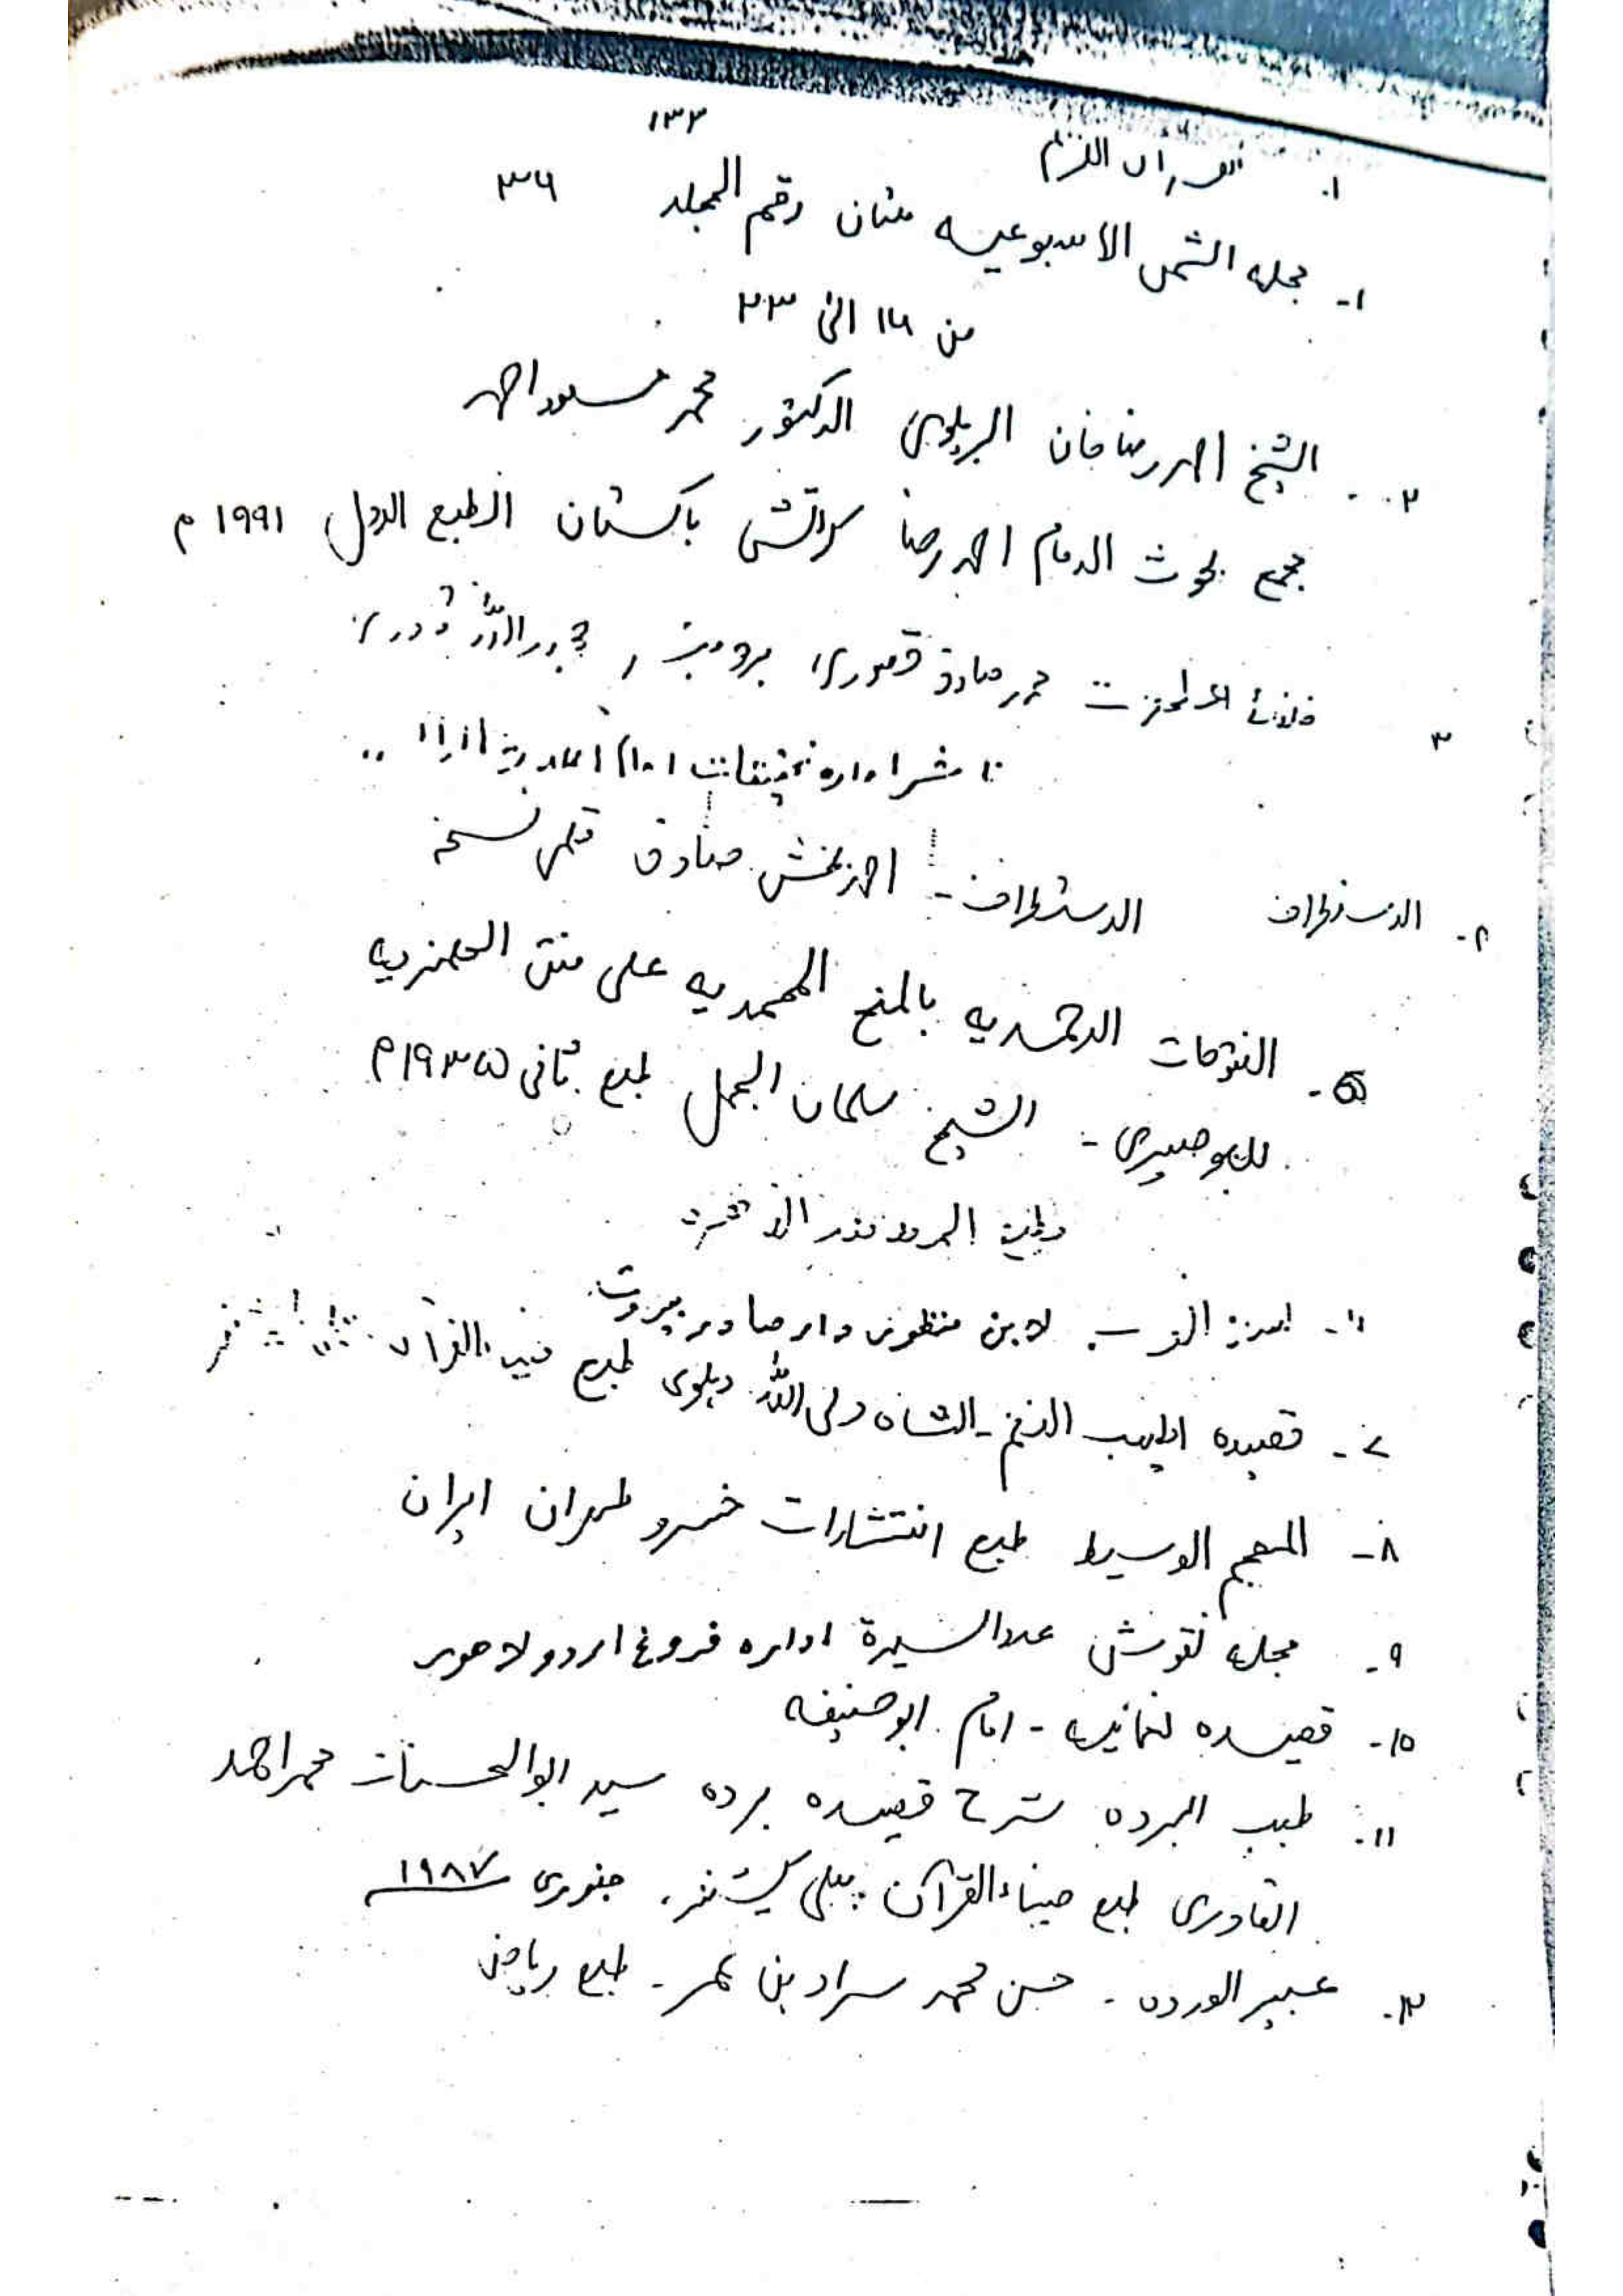 ۱۳۳
۱. القرآن الكريم
۱- مجله الشمس الاسبوعيه ملتان رقم المجلد ۳۶
من ۱۶ الى ۲۳
۲. الشيخ احمد رضا خان البريلوي الدكتور محمد مسعود احمد
مجمع بحوث الامام احمد رضا كراتشى باكستان الطبع الاول ۱۹۹۱ م
۳ خلفائے اعلحضرت محمد صادق قصوری پروفیسر مجید اللہ قادری
ناشر ادارہ تحقیقات امام احمد رضا
۴. الاستغراف الاستغراف - احمد بخش صادق قلمی نسخہ
۵. الفتوحات الاحمديه بالمنح المحمديه على متن الهمزيه
للبوصيرى - الشيخ سلمان الجمل طبع ثانى ۱۹۳۵م
۶- لسان العرب لابن منظور دار صادر بيروت
۷- قصيده اطيب النغم - الشاه ولى الله دہلوى طبع ضياء القرآن
۸- المعجم الوسيط طبع انتشارات خسرو طهران ايران
۹- مجله نقوش عدد السيرة اداره فروغ اردو لاهور
۱۰- قصيده نعمانيه - امام ابو حنيفه
۱۱- طيب البرده شرح قصيده برده سيد ابو الحسنات محمد احمد
القادرى طبع ضياء القرآن پبلی کیشنز، جنورى ۱۹۸۷
۱۲- عبير الورده - حسن محمد سراد بن عمر - طبع رياض